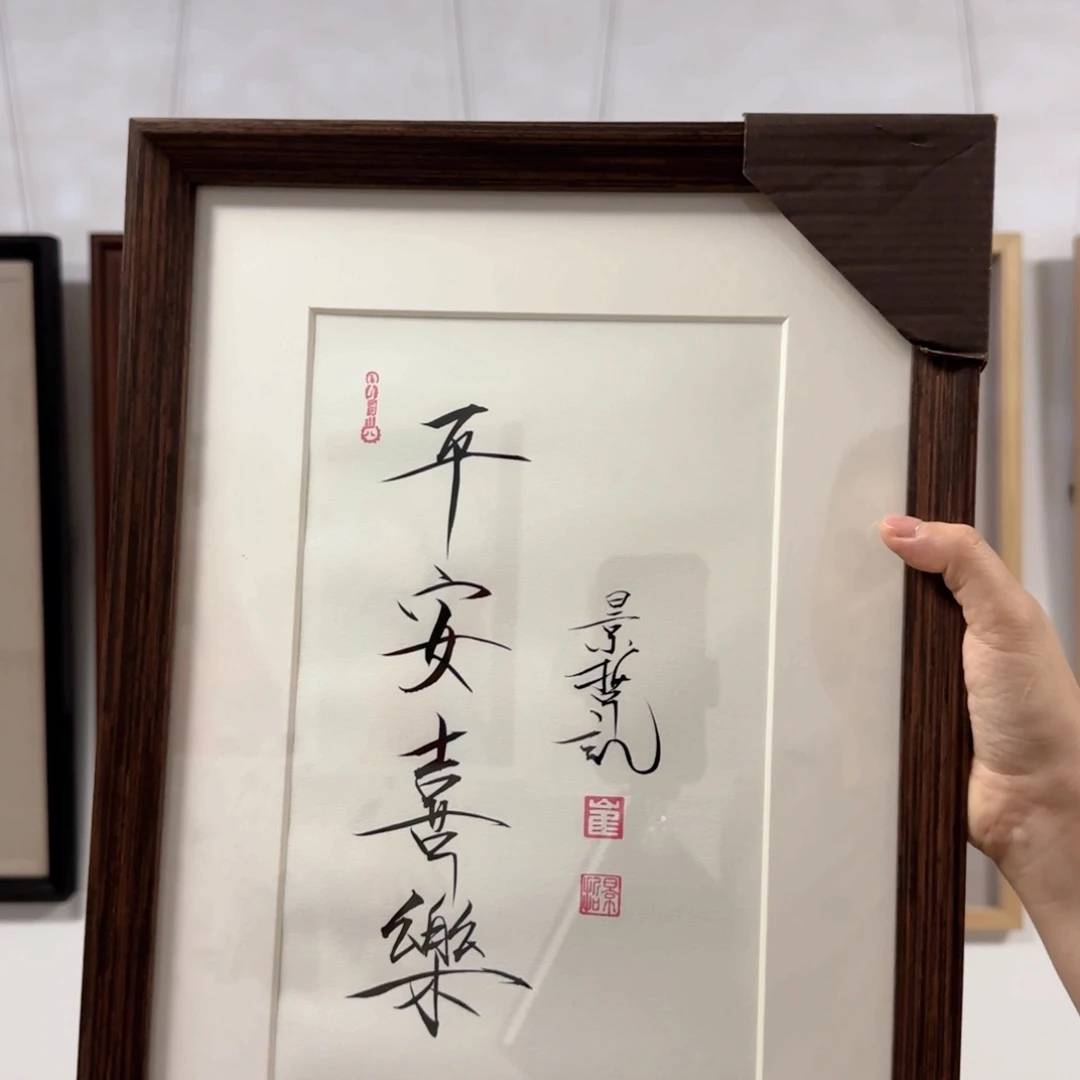 平安喜樂
景哲記
崔
景哲